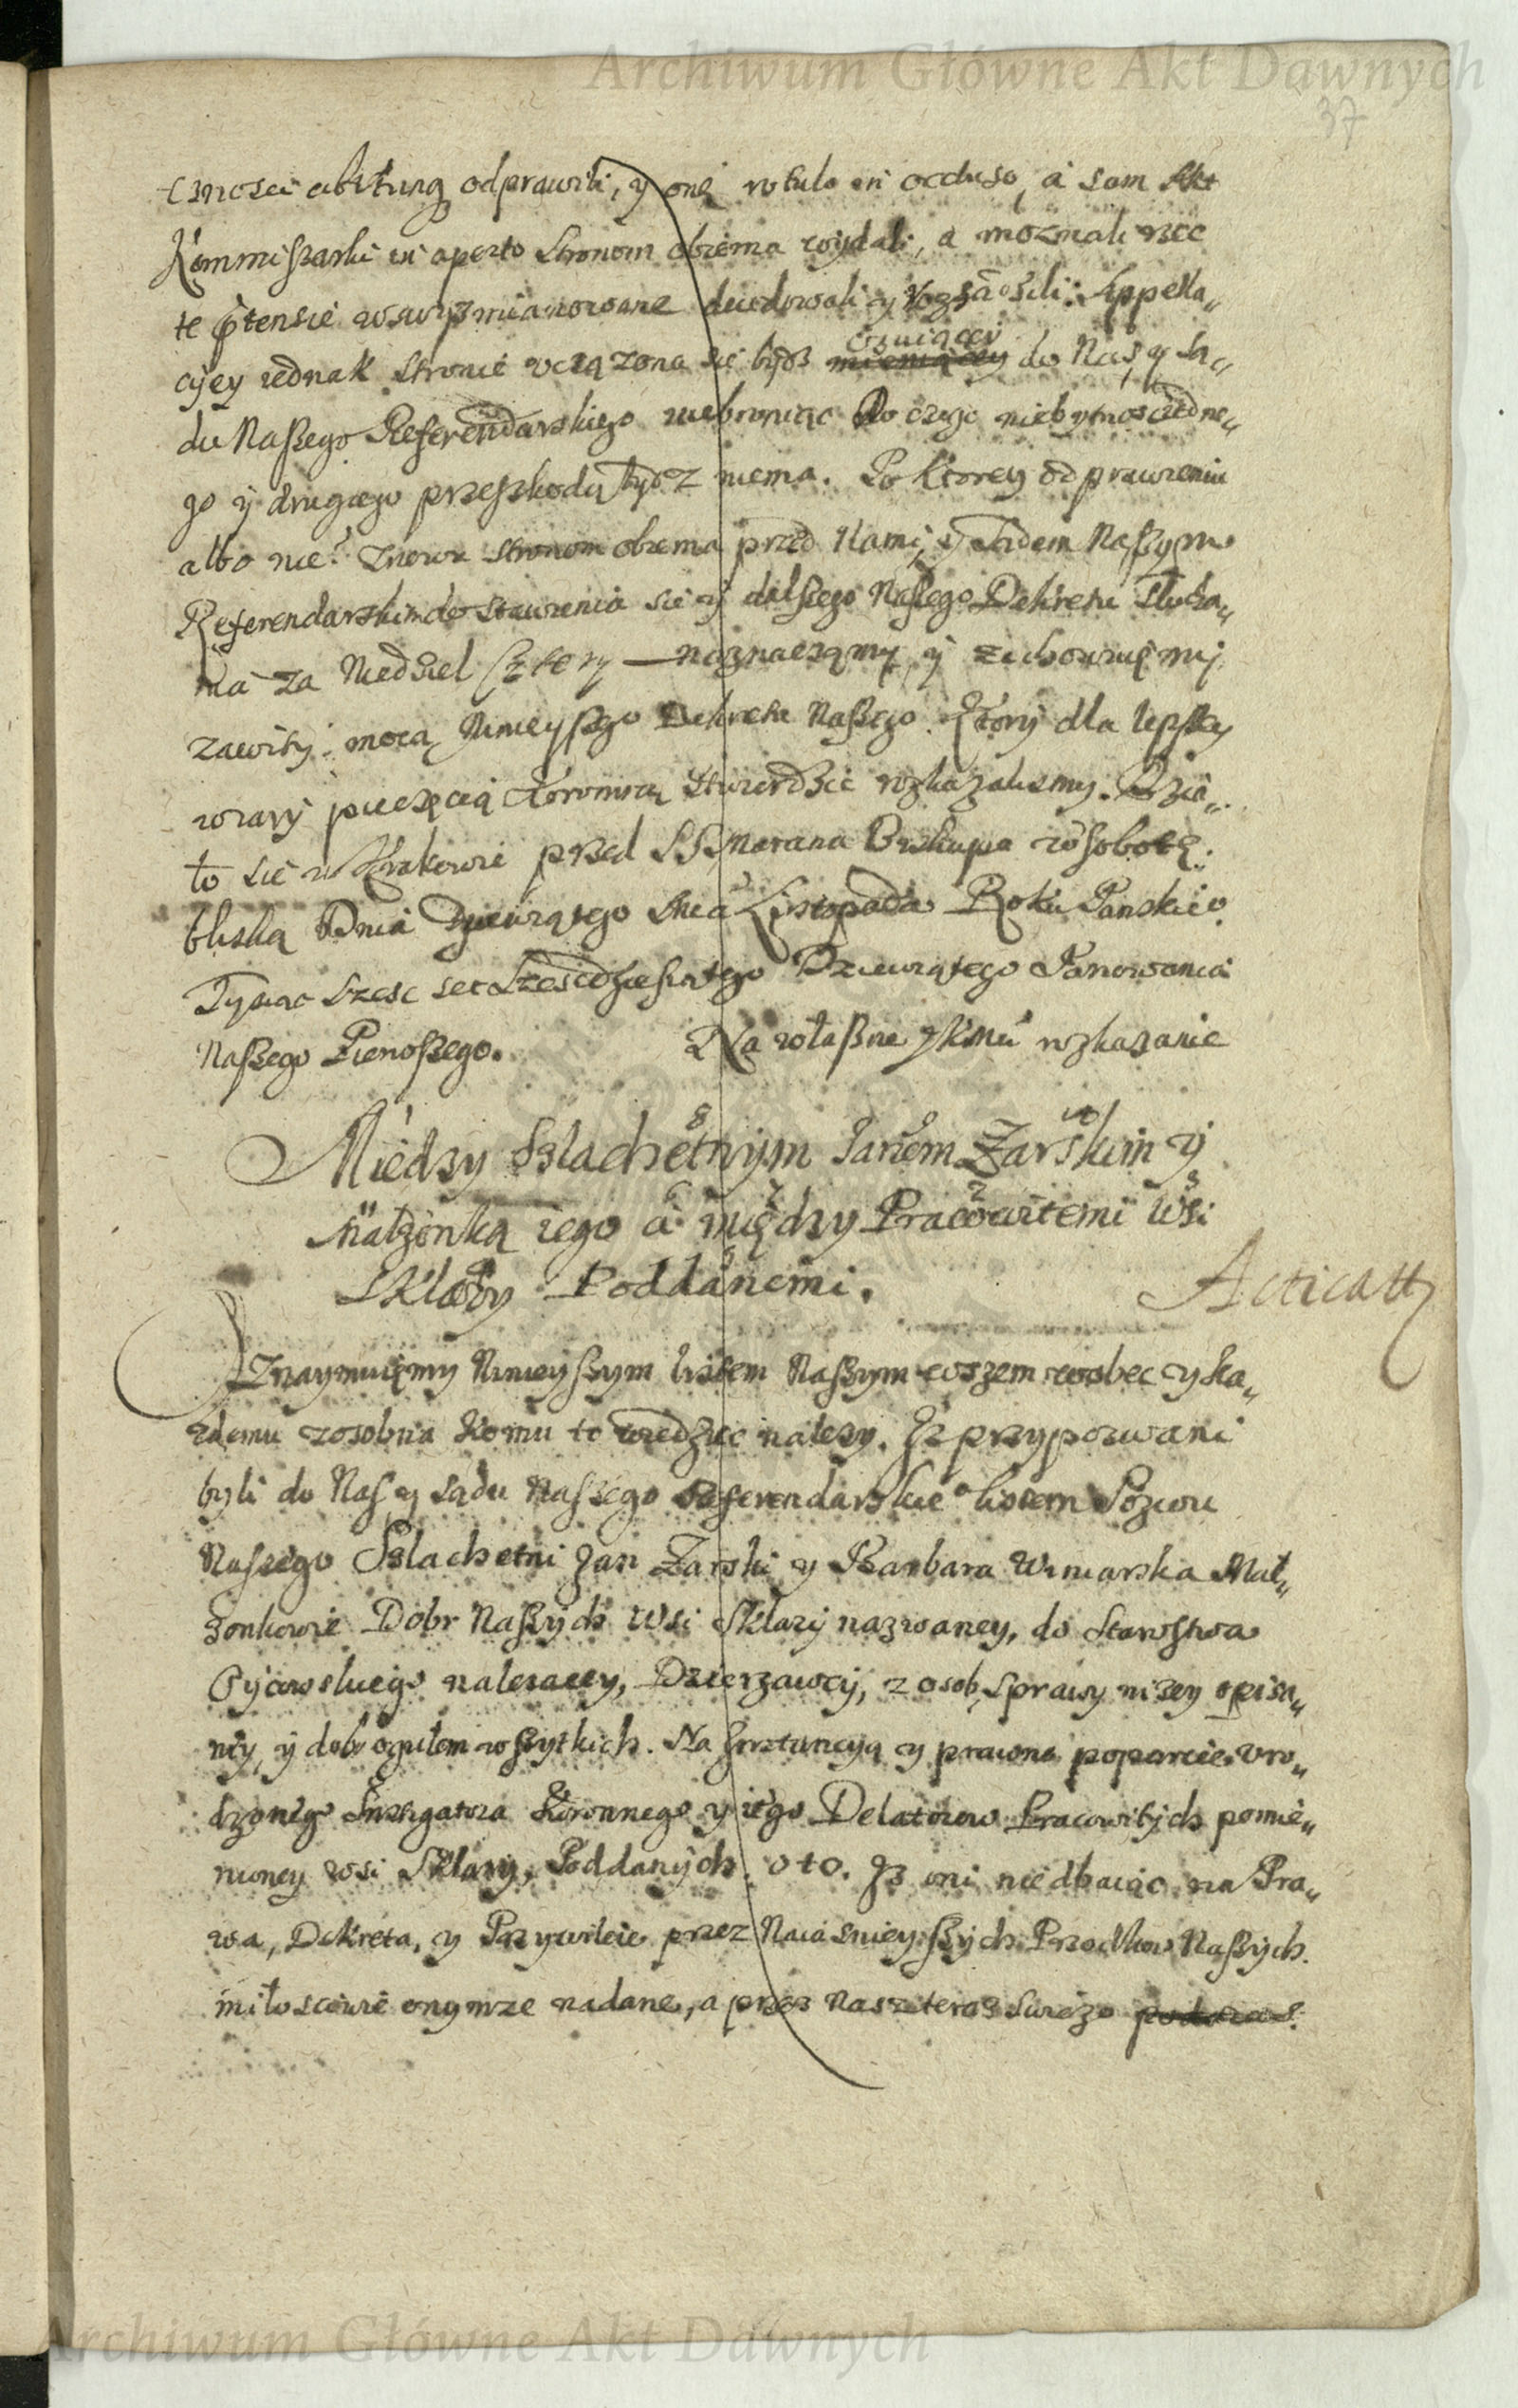 Archiwum Główne Akt Dawnych
37
odprawili, y onę rotulo in occluso, a sam Akt
Kommissarski in aperto stronom obiema wydali, a
te ptensie wswyz mianowane Appella„
cyey iednak stronie uciązona się bydz czuiącey do Nas, y Są„
du Naszego Referendarskiego niebroniąc Do czego niebytnosc iedne„
go ÿ drugiego przeszkodą bydz niema. Po ktorey odprawieniu
albo nie? Znowu stronom obiema przed Nami, y Sądem Naszym
Referendarskim do stawienia się ÿ dalszego Naszego Dekretu słucha„
nia za Niedziel cztery — naznaczamy, ÿ zachowuięmÿ
zawitÿ mocą Ninieyszego Dekretu Naszego. Ktorÿ dla lepszey
wiary pieczęcią Koronną stwierdzic rozkazalismy. Dzia„
ło się w Krakowie przed S. Marcina Biskupa w sobotę
bliską Dnia Dziewiątego Mca Listopada Roku Panskieo
Tysiąc szesc set szescdziesiątego Dziewiątego Panowania
Naszego Pierwszego. Na własne JKMci rozkazanie
Między Szlachetnym Janem Żarskim ÿ
Małżonką iego a między Pracowitemi wsi
Sklary Poddanemi.
Acticatt
Oznaymuięmy Ninieyszym listem Naszym wszem wobec y ka„
zdemu zosobna komu to wiedziec nalezy. Iz przypozwani
byli do Nas y sądu Naszego Referendarskieo listem Pozwu
Naszego Szlachetni Jan Zarski y Barbara Winiarska Mał„
zonkowie Dobr Naszych wsi Sklarÿ nazwaney, do Starostwa
nalezącey, Dzierzawcÿ, z osob, sprawy nizey opisa„
nÿ, ÿ dobr ogułem wszytkich. Na Instancyą y prawne poparcie Uro„
dzonego Instigatora Koronnego y iego Delatorow Pracowitych pomie„
nioney wsi Sklary, Poddanÿch. o to. Iz oni niedbaiąc na Pra„
wa, Dekreta, y Przywileie przez Naiasnieyszÿch Przodkow Naszÿch.
miłosciwie onymze nadane, a przez Nas teraz swiezo
Archiwum Główne Akt Dawnych